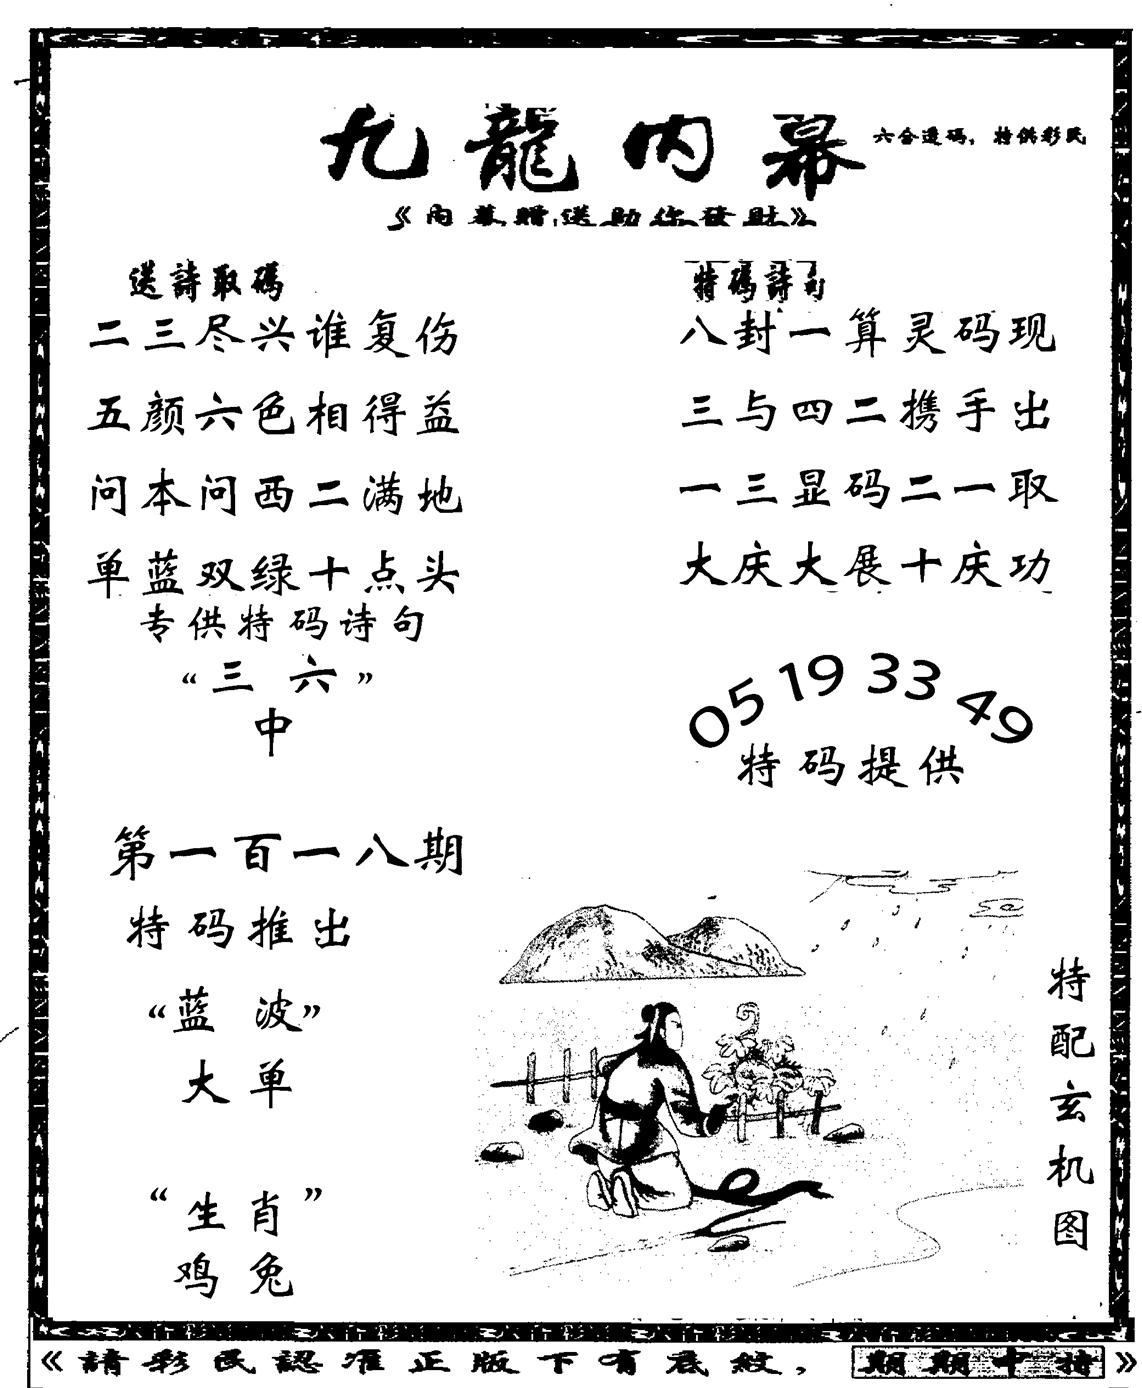 九龍内幕
六合透码，特供彩民
《内幕赠送助你發財》
送詩取碼
二三尽兴谁复伤
五颜六色相得益
问本问西二满地
单蓝双绿十点头
专供特码诗句
“三六”
中
特碼詩句
八封一算灵码现
三与四二携手出
一三显码二一取
大庆大展十庆功
05 19 33 49
特码提供
第一百一八期
特码推出
“蓝波”
大单
“生肖”
鸡兔
特配玄机图
《請彩民認准正版下有底紋，期期中特》